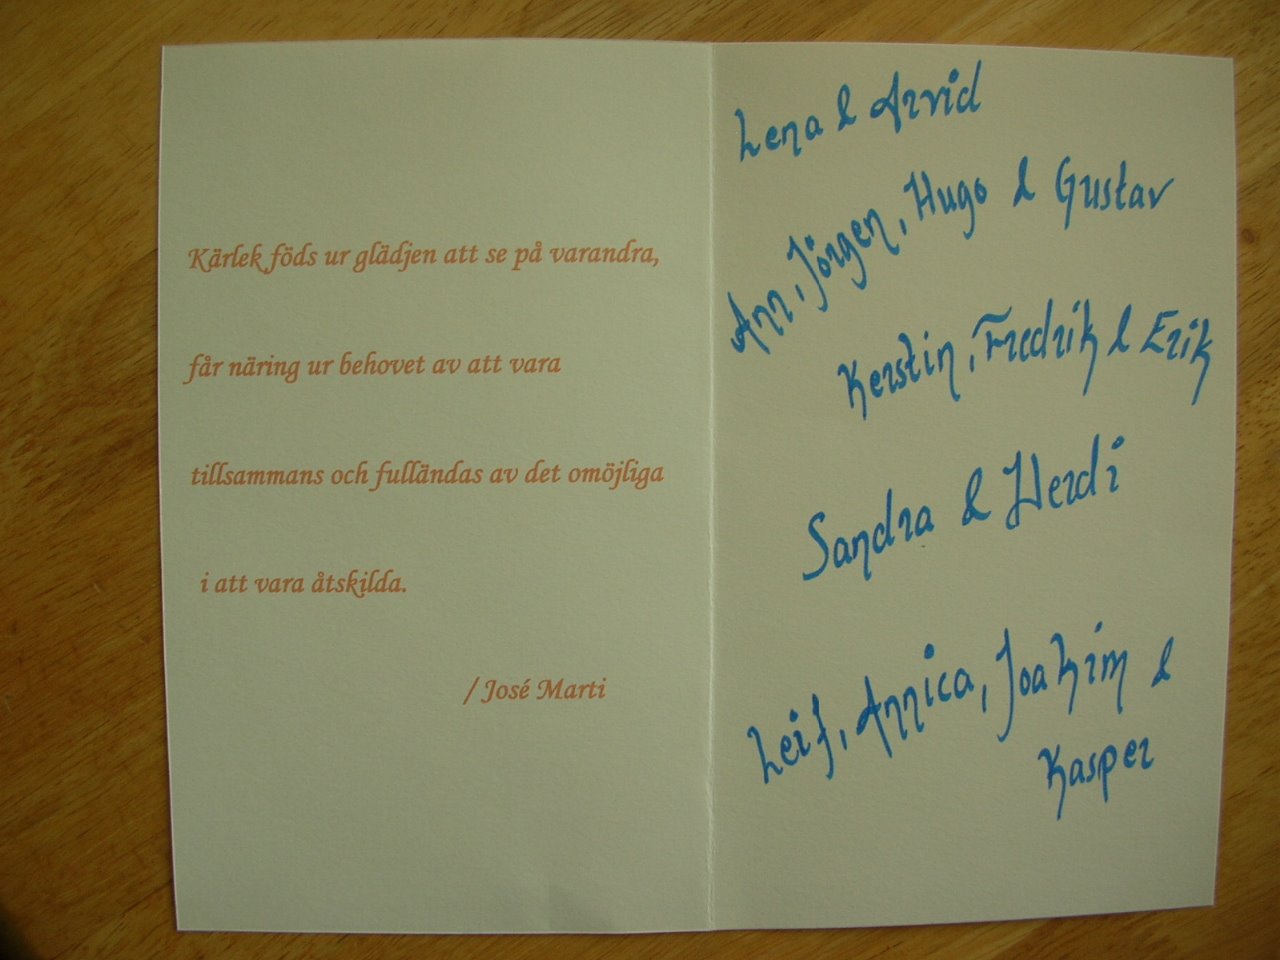 Kärlek föds ur glädjen att se på varandra,
får näring ur behovet av att vara
tillsammans och fulländas av det omöjliga
i att vara åtskilda.
/ José Marti
Lena & Arvid
Ann, Jörgen, Hugo & Gustav
Kerstin, Fredrik & Erik
Sandra & Heidi
Leif, Annica, Joakim &
Kasper